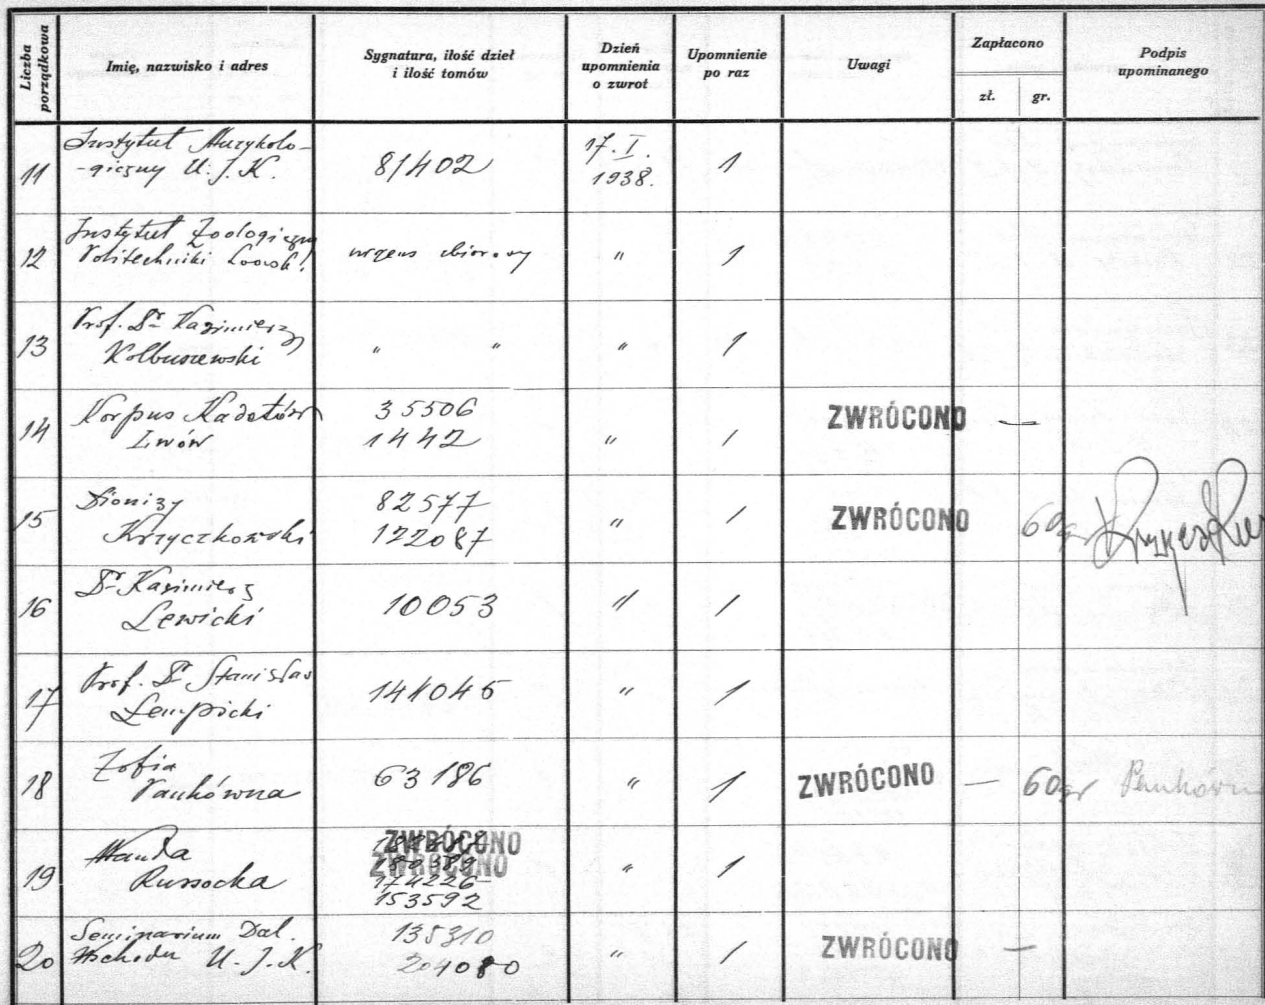 Liczba porządkowa
Imię, nazwisko i adres
Sygnatura, ilość dzieł
i ilość tomów
Dzień
upomnienia
o zwrot
Upomnienie
po raz
Uwagi
Zapłacono
zł.
gr.
Podpis
upominanego
11
Instytut Muzykolo-
-giczny U. J. K.
81402
17. I.
1938.
1
12
Instytut Zoologiczny
Politechniki Lwowsk.
"
1
13
Prof. Dr Kazimierz
Kolbuszewski
" "
"
1
14
Korpus Kadetów
Lwów
35506
1442
"
1
ZWRÓCONO
—
15
Dionizy
Krzyczkowski
82577
122087
"
1
ZWRÓCONO
60 gr
16
Dr Kazimierz
Lewicki
10053
"
1
17
Prof. Dr Stanisław
Łempicki
141045
"
1
18
Zofia
Pankówna
63186
"
1
ZWRÓCONO
—
60 gr
Pankówna
19
Wanda
Russocka
ZWRÓCONO
ZWRÓCONO
174226
153592
"
1
20
Seminarium Dal.
Wschodu U. J. K.
135310
204080
"
1
ZWRÓCONO
—